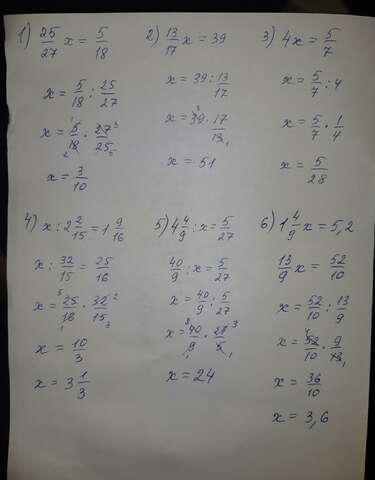 1) 25/27 x = 5/18
x = 5/18 : 25/27
x = 5/18 · 27/25
x = 3/10
2) 13/17 x = 39
x = 39 : 13/17
x = 39 · 17/13
x = 51
3) 4x = 5/7
x = 5/7 : 4
x = 5/7 · 1/4
x = 5/28
4) x : 2 2/15 = 1 9/16
x : 32/15 = 25/16
x = 25/16 · 32/15
x = 10/3
x = 3 1/3
5) 4 4/9 : x = 5/27
40/9 : x = 5/27
x = 40/9 : 5/27
x = 40/9 · 27/5
x = 24
6) 1 4/9 x = 5,2
13/9 x = 52/10
x = 52/10 : 13/9
x = 52/10 · 9/13
x = 36/10
x = 3,6